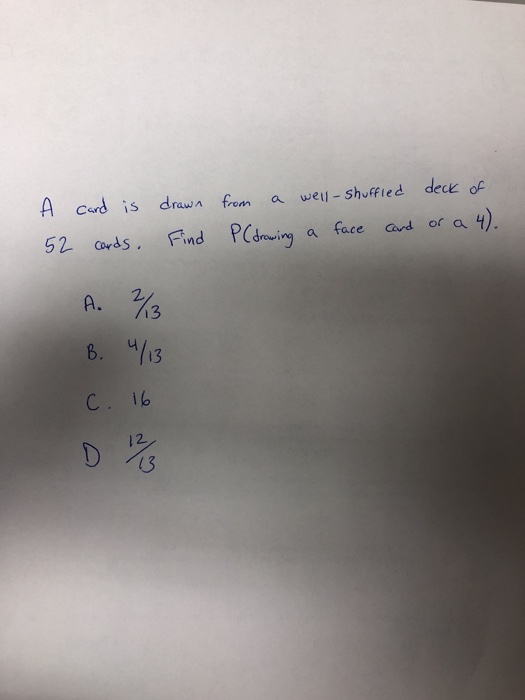 A card is drawn from a well-shuffled deck of
52 cards. Find P(drawing a face card or a 4).
A. 2/13
B. 4/13
C. 16
D 12/13